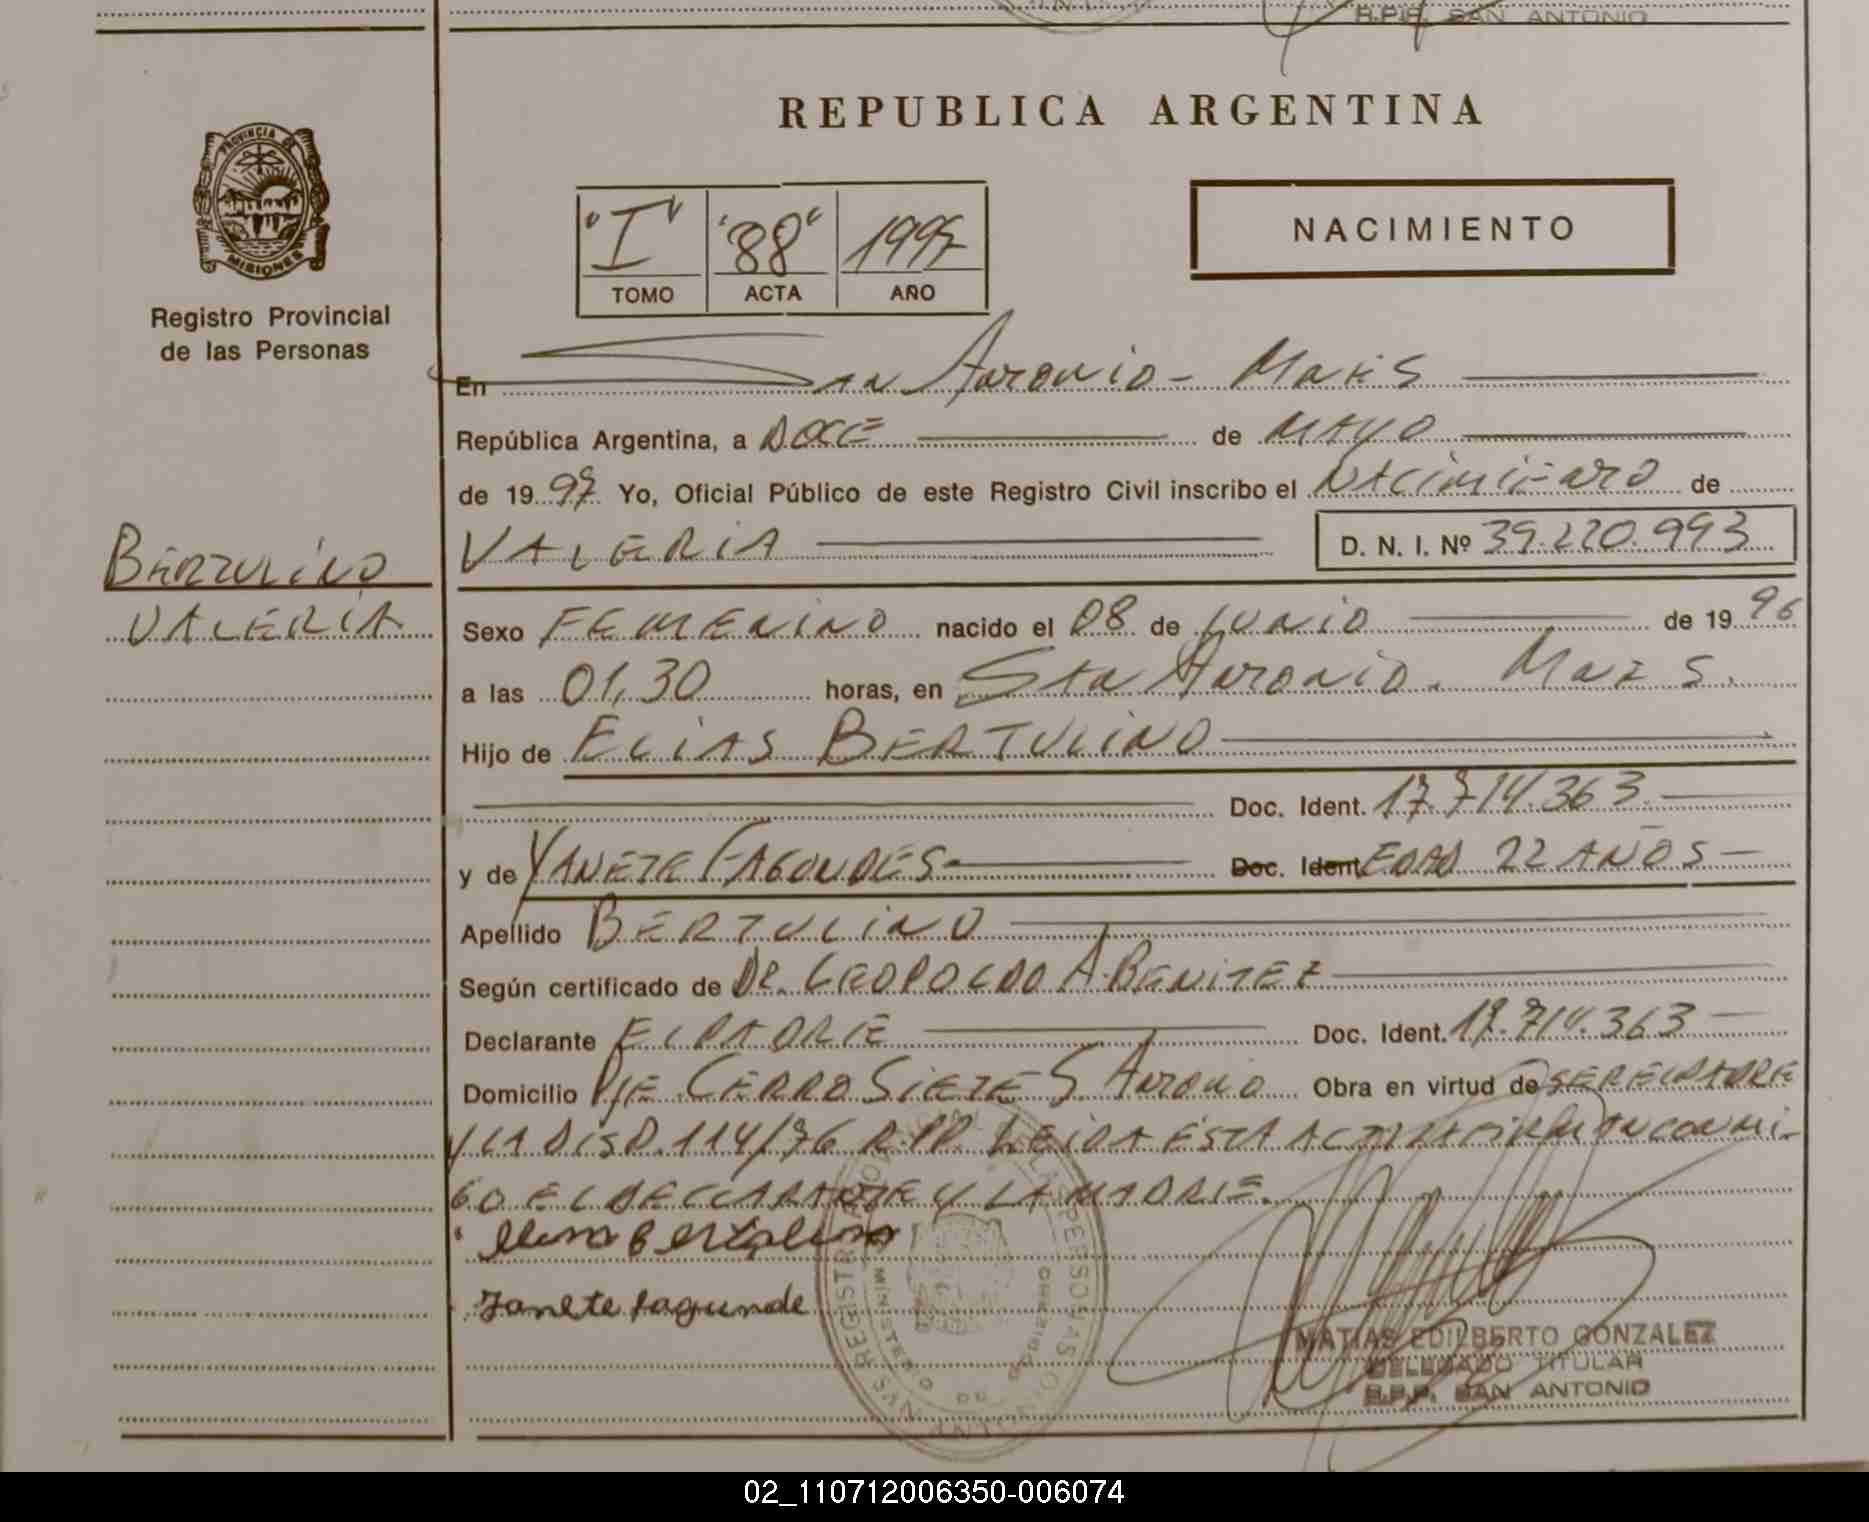 B.P.P. SAN ANTONIO
REPUBLICA ARGENTINA
PROVINCIA DE
MISIONES
Registro Provincial
de las Personas
"I" "88" 1997
TOMO ACTA AÑO
NACIMIENTO
En San Antonio - Mnes
República Argentina, a DOCE de MAYO
de 1997 Yo, Oficial Público de este Registro Civil inscribo el NACIMIENTO de
BERTULINO
VALERIA
VALERIA D. N. I. Nº 39.220.993
Sexo FEMENINO nacido el 08 de JUNIO de 1996
a las 01,30 horas, en San Antonio. Mnes.
Hijo de ELIAS BERTULINO
Doc. Ident. 17.714.363
y de YANETE FAGUNDES Doc. Ident. EDAD 22 AÑOS
Apellido BERTULINO
Según certificado de DR. LEOPOLDO A. BENITEZ
Declarante EL PADRE Doc. Ident. 17.714.363
Domicilio PJE CERRO SIETE S. Antonio Obra en virtud de SER EL PADRE
Y LA DISP. 114/96 R.P.P. LEIDA ESTA ACTA LA FIRMAN CONMI-
GO EL DECLARANTE Y LA MADRE.
Bertolino
Janete fagunde
MATIAS EDILBERTO GONZALEZ
DELEGADO TITULAR
B.P.P. SAN ANTONIO
02_110712006350-006074